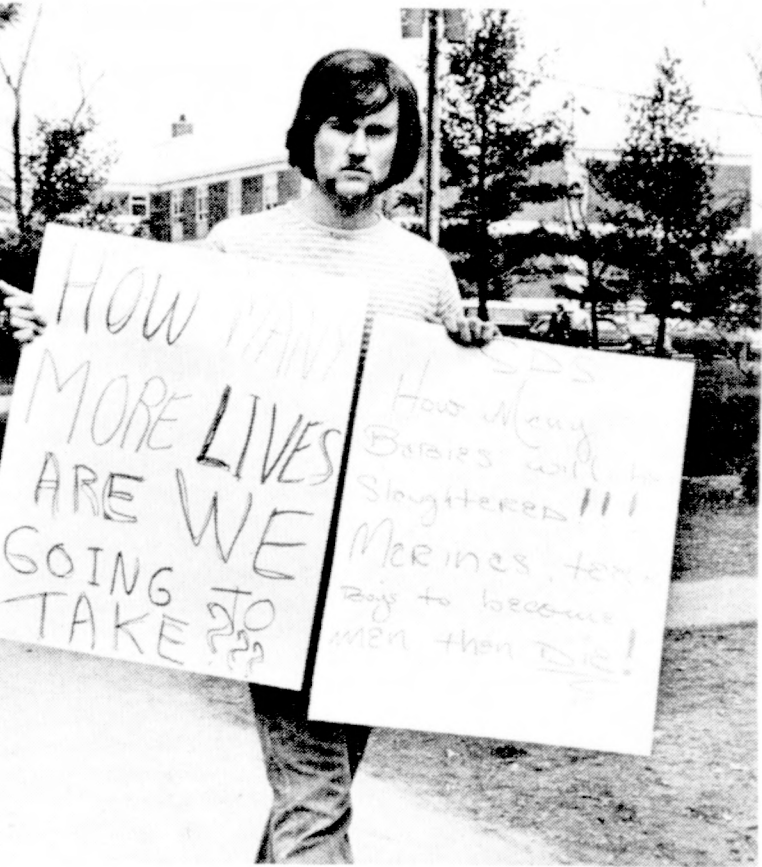 HOW MANY
MORE LIVES
ARE WE
GOING TO
TAKE???
SDS
How Many
Babies will be
Slaughtered!!!
Marines
Boys to become
men then DIE!